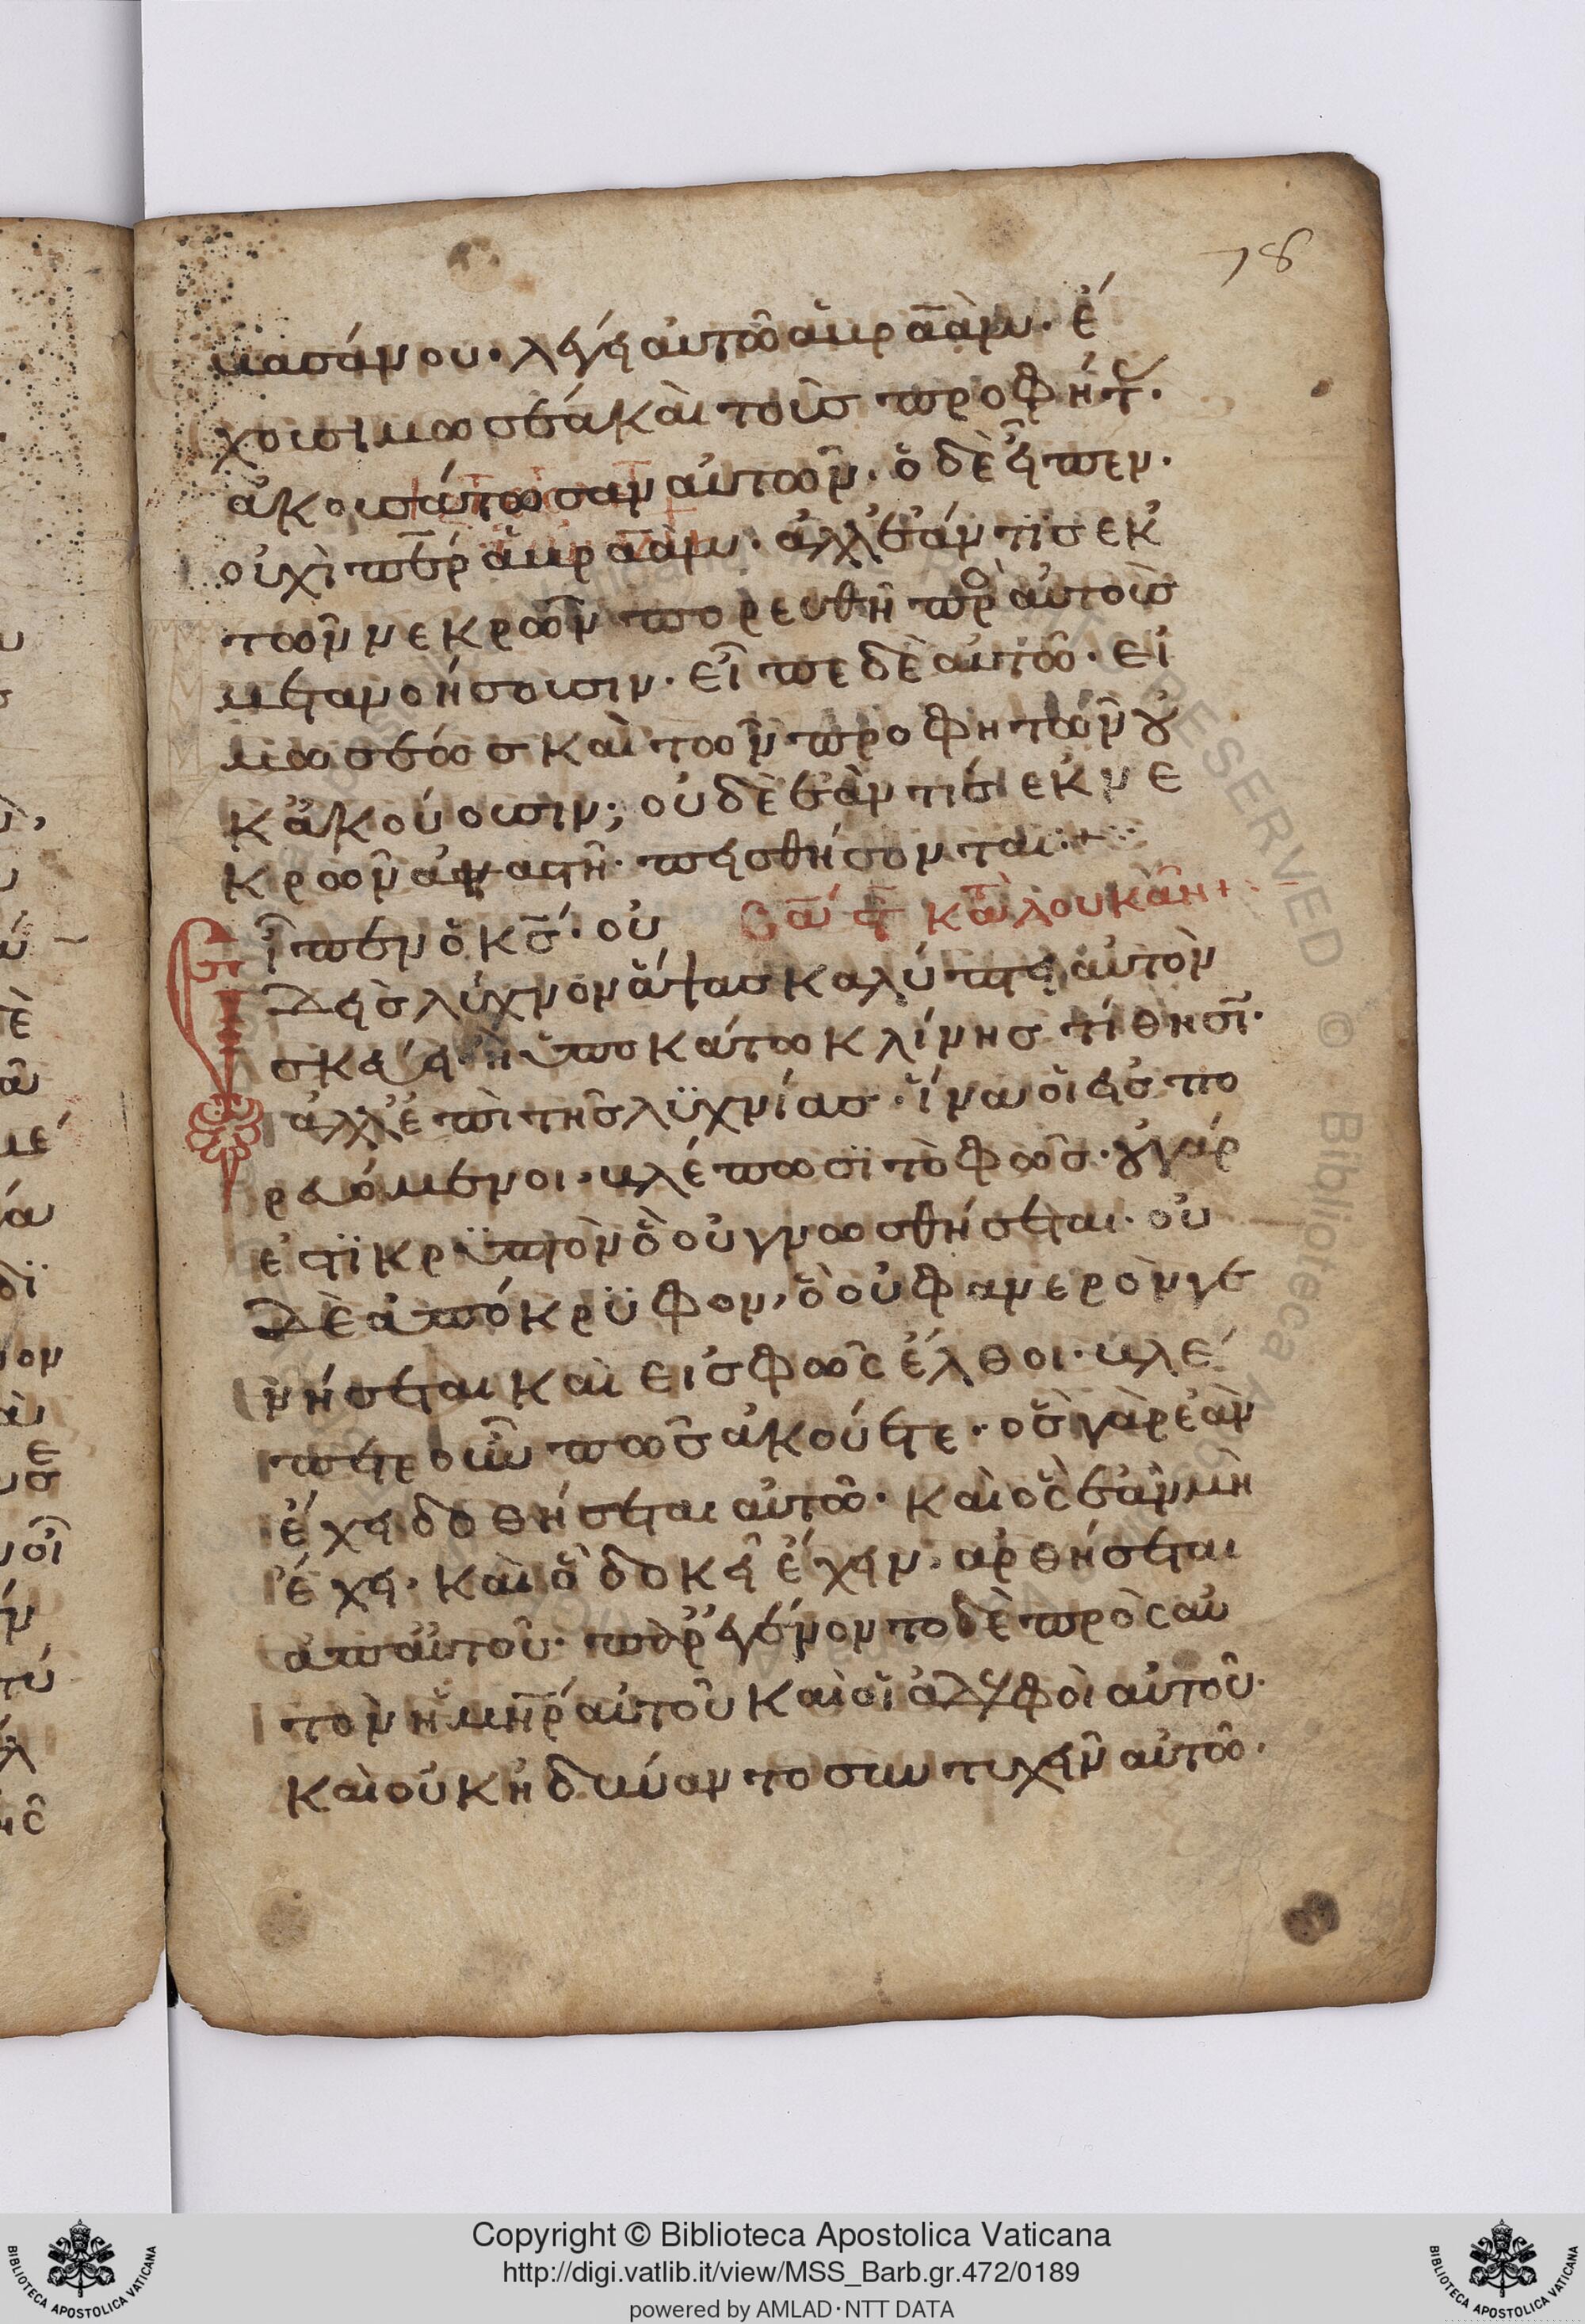 78
βασάνου· λέγει αὐτῶ ἀβραάμ· ἔ
χουσι μωσέα καὶ τοὺς προφήτ·
ἀκουσάτωσαν αὐτῶν· ὁ δὲ εἶπεν·
οὐχὶ πε̅ρ ἀβραάμ· ἀλλ' ἐάν τις ἐκ
τῶν νεκρῶν πορευθῆ πρὸ αὐτοὺς
μετανοήσουσιν· εἶπε δὲ αὐτῶ· εἰ
μωσέως καὶ τῶν προφητῶν οὐ
κ ἀκούουσιν; οὐδὲ ἐάν τις ἐκ νε
κρῶν ἀναστῆ· πεισθήσονται:+
Σα ϛ κα λουκαν+
Εἶπεν ὁ κς̅· οὐ
δεὶς λύχνον ἅψας καλύπτει αὐτὸν
σκεύει· ἢ ὑποκάτω κλίνης τίθησι·
ἀλλ' ἐπὶ τῆς λϋχνίας· ἵνα οἱ εἰσπο
ρευόμενοι· βλέπωσϊ τὸ φῶς· οὐ γάρ
ἐστϊ κρϋπτὸν ὃ οὐ γνωσθήσεται· οὐ
δὲ ἀπόκρϋφον, ὃ οὐ φανερὸν γε
νήσεται καὶ εἰς φῶς ἔλθοι· βλέ
πετε οὖν πῶς ἀκούετε· ὃς γὰρ ἐὰν
ἔχει δοθήσεται αὐτῶ· καὶ ὃς ἐὰν μὴ
ἔχει· καὶ ὃ δοκεῖ ἔχειν· ἀρθήσεται
ἀπ' αὐτοῦ· παρεγένοντο δὲ πρὸς αὐ
τὸν ἡ μη̅ρ αὐτοῦ καὶ οἱ ἀδελφοὶ αὐτοῦ·
καὶ οὐκ ἠδύναντο συντυχεῖν αὐτῶ·
Copyright © Biblioteca Apostolica Vaticana
http://digi.vatlib.it/view/MSS_Barb.gr.472/0189
powered by AMLAD·NTT DATA
BIBLIOTECA APOSTOLICA VATICANA
BIBLIOTECA APOSTOLICA VATICANA